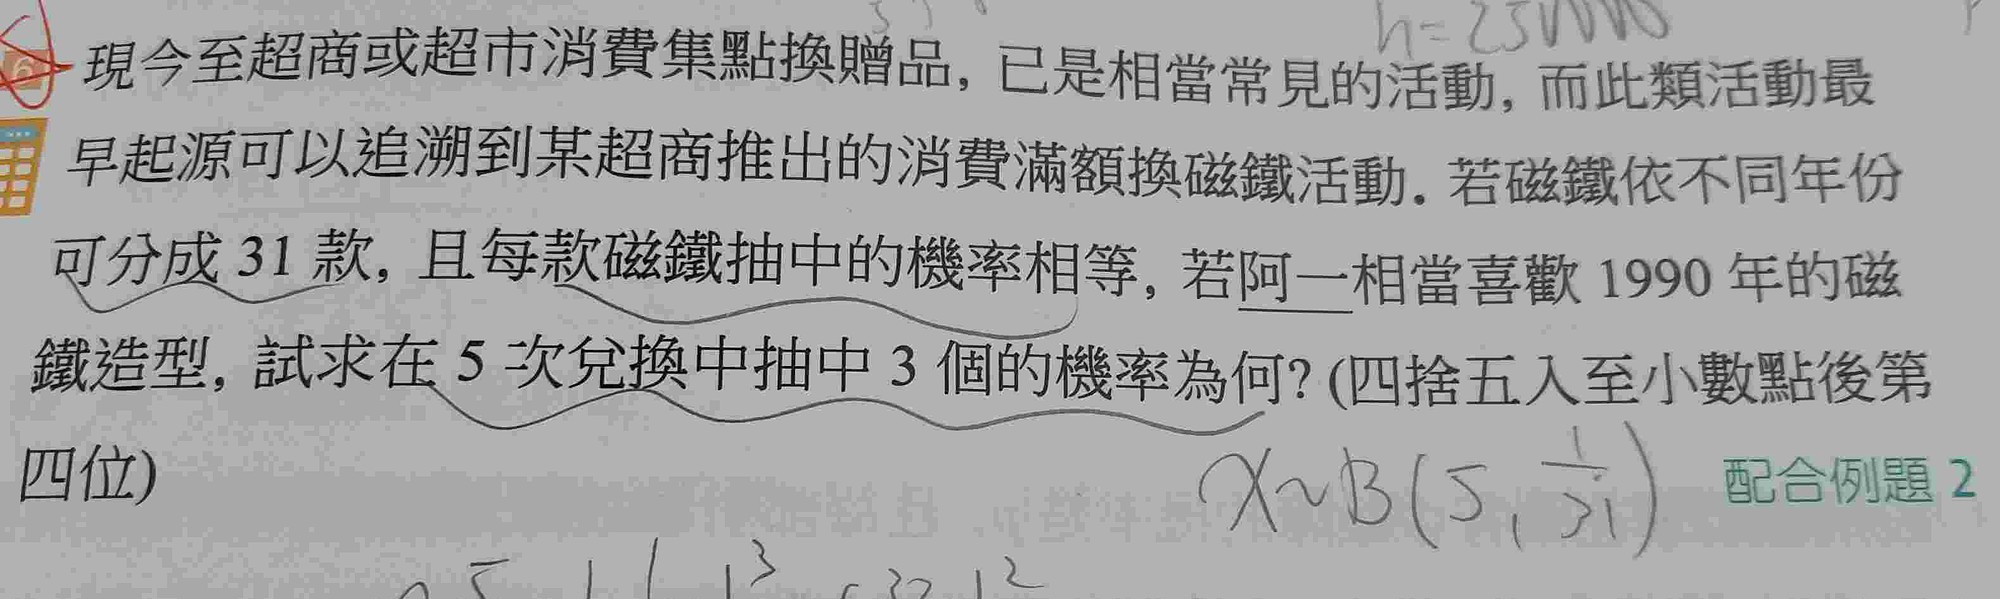 h=25
6 現今至超商或超市消費集點換贈品, 已是相當常見的活動, 而此類活動最
早起源可以追溯到某超商推出的消費滿額換磁鐵活動. 若磁鐵依不同年份
可分成 31 款, 且每款磁鐵抽中的機率相等, 若阿一相當喜歡 1990 年的磁
鐵造型, 試求在 5 次兌換中抽中 3 個的機率為何? (四捨五入至小數點後第
四位)
X~B(5, 1/31)
配合例題 2